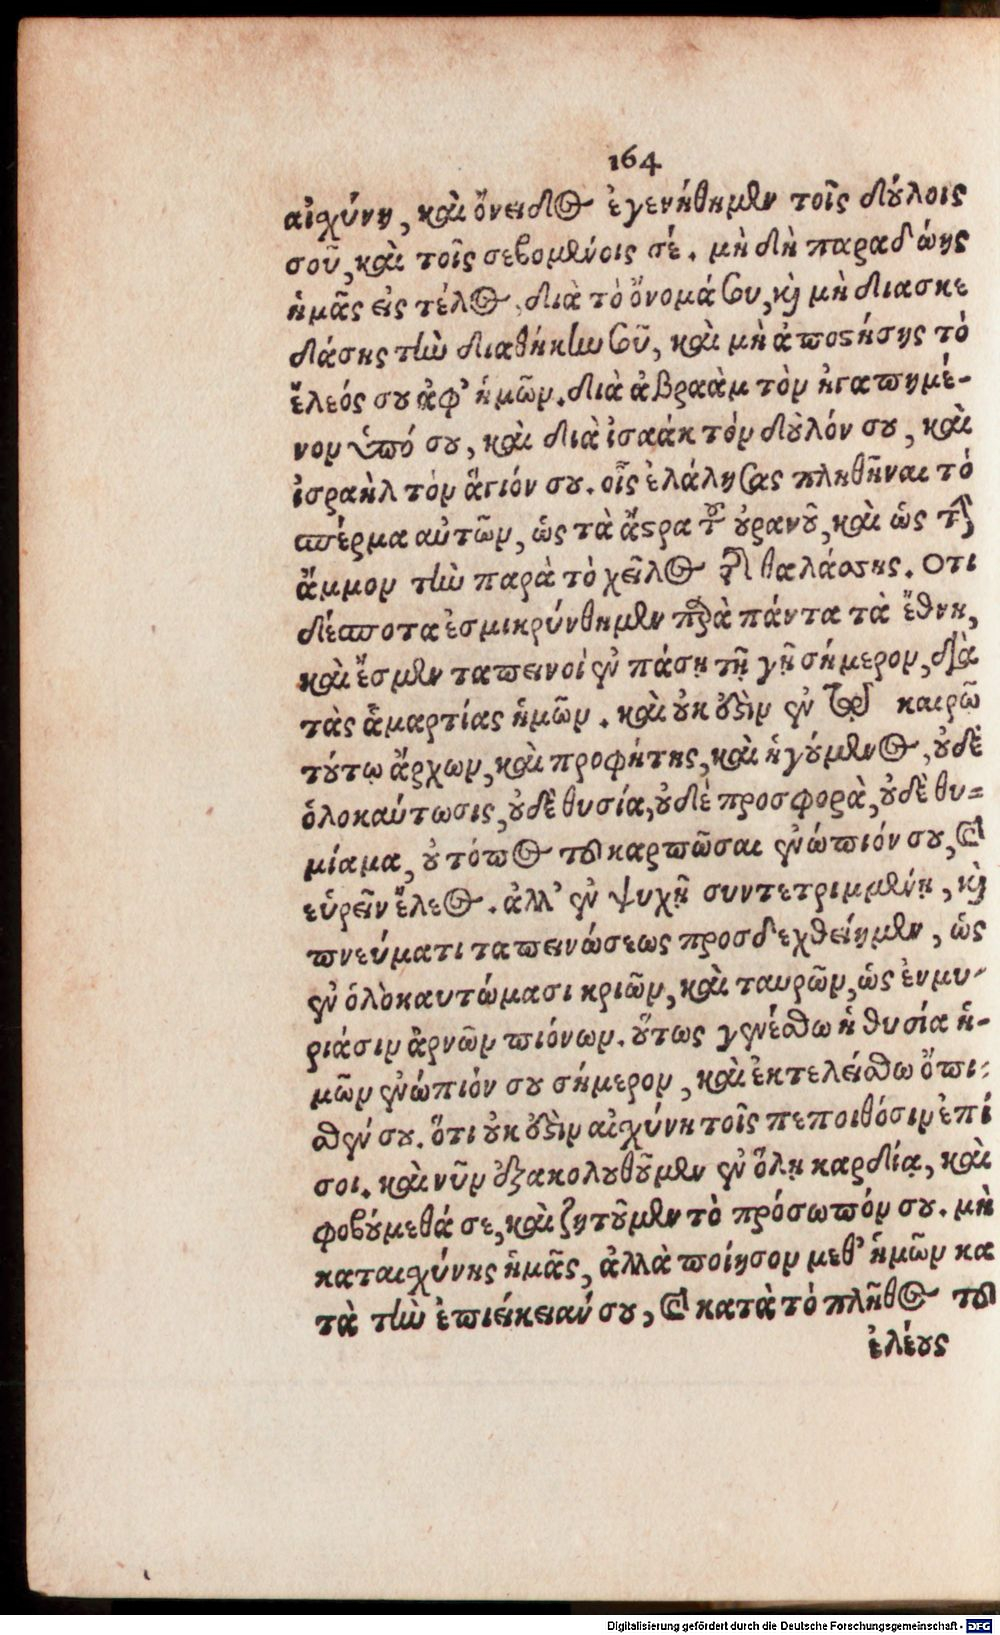 164
αἰχύνη, καὶ ὄνειδος ἐγενήθημεν τοῖς δούλοις
σοῦ, καὶ τοῖς σεβομένοις σέ. μὴ δὴ παραδώης
ἡμᾶς εἰς τέλος, διὰ τὸ ὄνομά σου, καὶ μὴ διασκε
δάσης τὴν διαθήκην σοῦ, καὶ μὴ ἀποστήσης τὸ
ἔλεός σου ἀφ' ἡμῶν. διὰ ἀβραὰμ τὸν ἠγαπημέ-
νον ὑπό σου, καὶ διὰ ἰσαάκ τὸν δοῦλόν σου, καὶ
ἰσραὴλ τὸν ἅγιόν σου. οἷς ἐλάλησας πληθῆναι τὸ
σπέρμα αὐτῶν, ὡς τὰ ἄστρα τοῦ οὐρανοῦ, καὶ ὡς τὴν
ἄμμον τὴν παρὰ τὸ χεῖλος τῆς θαλάσσης. Οτι
δέσποτα ἐσμικρύνθημεν παρὰ πάντα τὰ ἔθνη,
καὶ ἔσμεν ταπεινοί ἐν πάσῃ τῇ γῇ σήμερον, διὰ
τὰς ἁμαρτίας ἡμῶν. καὶ οὐκ ἔστιν ἐν τῷ καιρῷ
τούτῳ ἄρχων, καὶ προφήτης, καὶ ἡγούμενος, οὐδὲ
ὁλοκαύτωσις, οὐδὲ θυσία, οὐδὲ προσφορὰ, οὐδὲ θυ=
μίαμα, οὐ τόπος τοῦ καρπῶσαι ἐνώπιόν σου, καὶ
εὑρεῖν ἔλεος. ἀλλ' ἐν ψυχῇ συντετριμμένῃ, καὶ
πνεύματι ταπεινώσεως προσδεχθείημεν, ὡς
ἐν ὁλοκαυτώμασι κριῶν, καὶ ταυρῶν, ὡς ἐν μυ-
ριάσιν ἀρνῶν πιόνων. οὕτως γενέσθω ἡ θυσία ἡ-
μῶν ἐνώπιόν σου σήμερον, καὶ ἐκτελείσθω ὄπι-
σθέν σου. ὅτι οὐκ ἔστιν αἰχύνη τοῖς πεποιθόσιν ἐπί
σοι. καὶ νῦν ἐξακολουθοῦμεν ἐν ὅλῃ καρδίᾳ, καὶ
φοβούμεθά σε, καὶ ζητοῦμεν τὸ πρόσωπόν σου. μὴ
καταιχύνης ἡμᾶς, ἀλλὰ ποίησον μεθ' ἡμῶν κα
τὰ τὴν ἐπιείκειάν σου, καὶ κατὰ τὸ πλῆθος τοῦ
ἐλέους
Digitalisierung gefördert durch die Deutsche Forschungsgemeinschaft - DFG